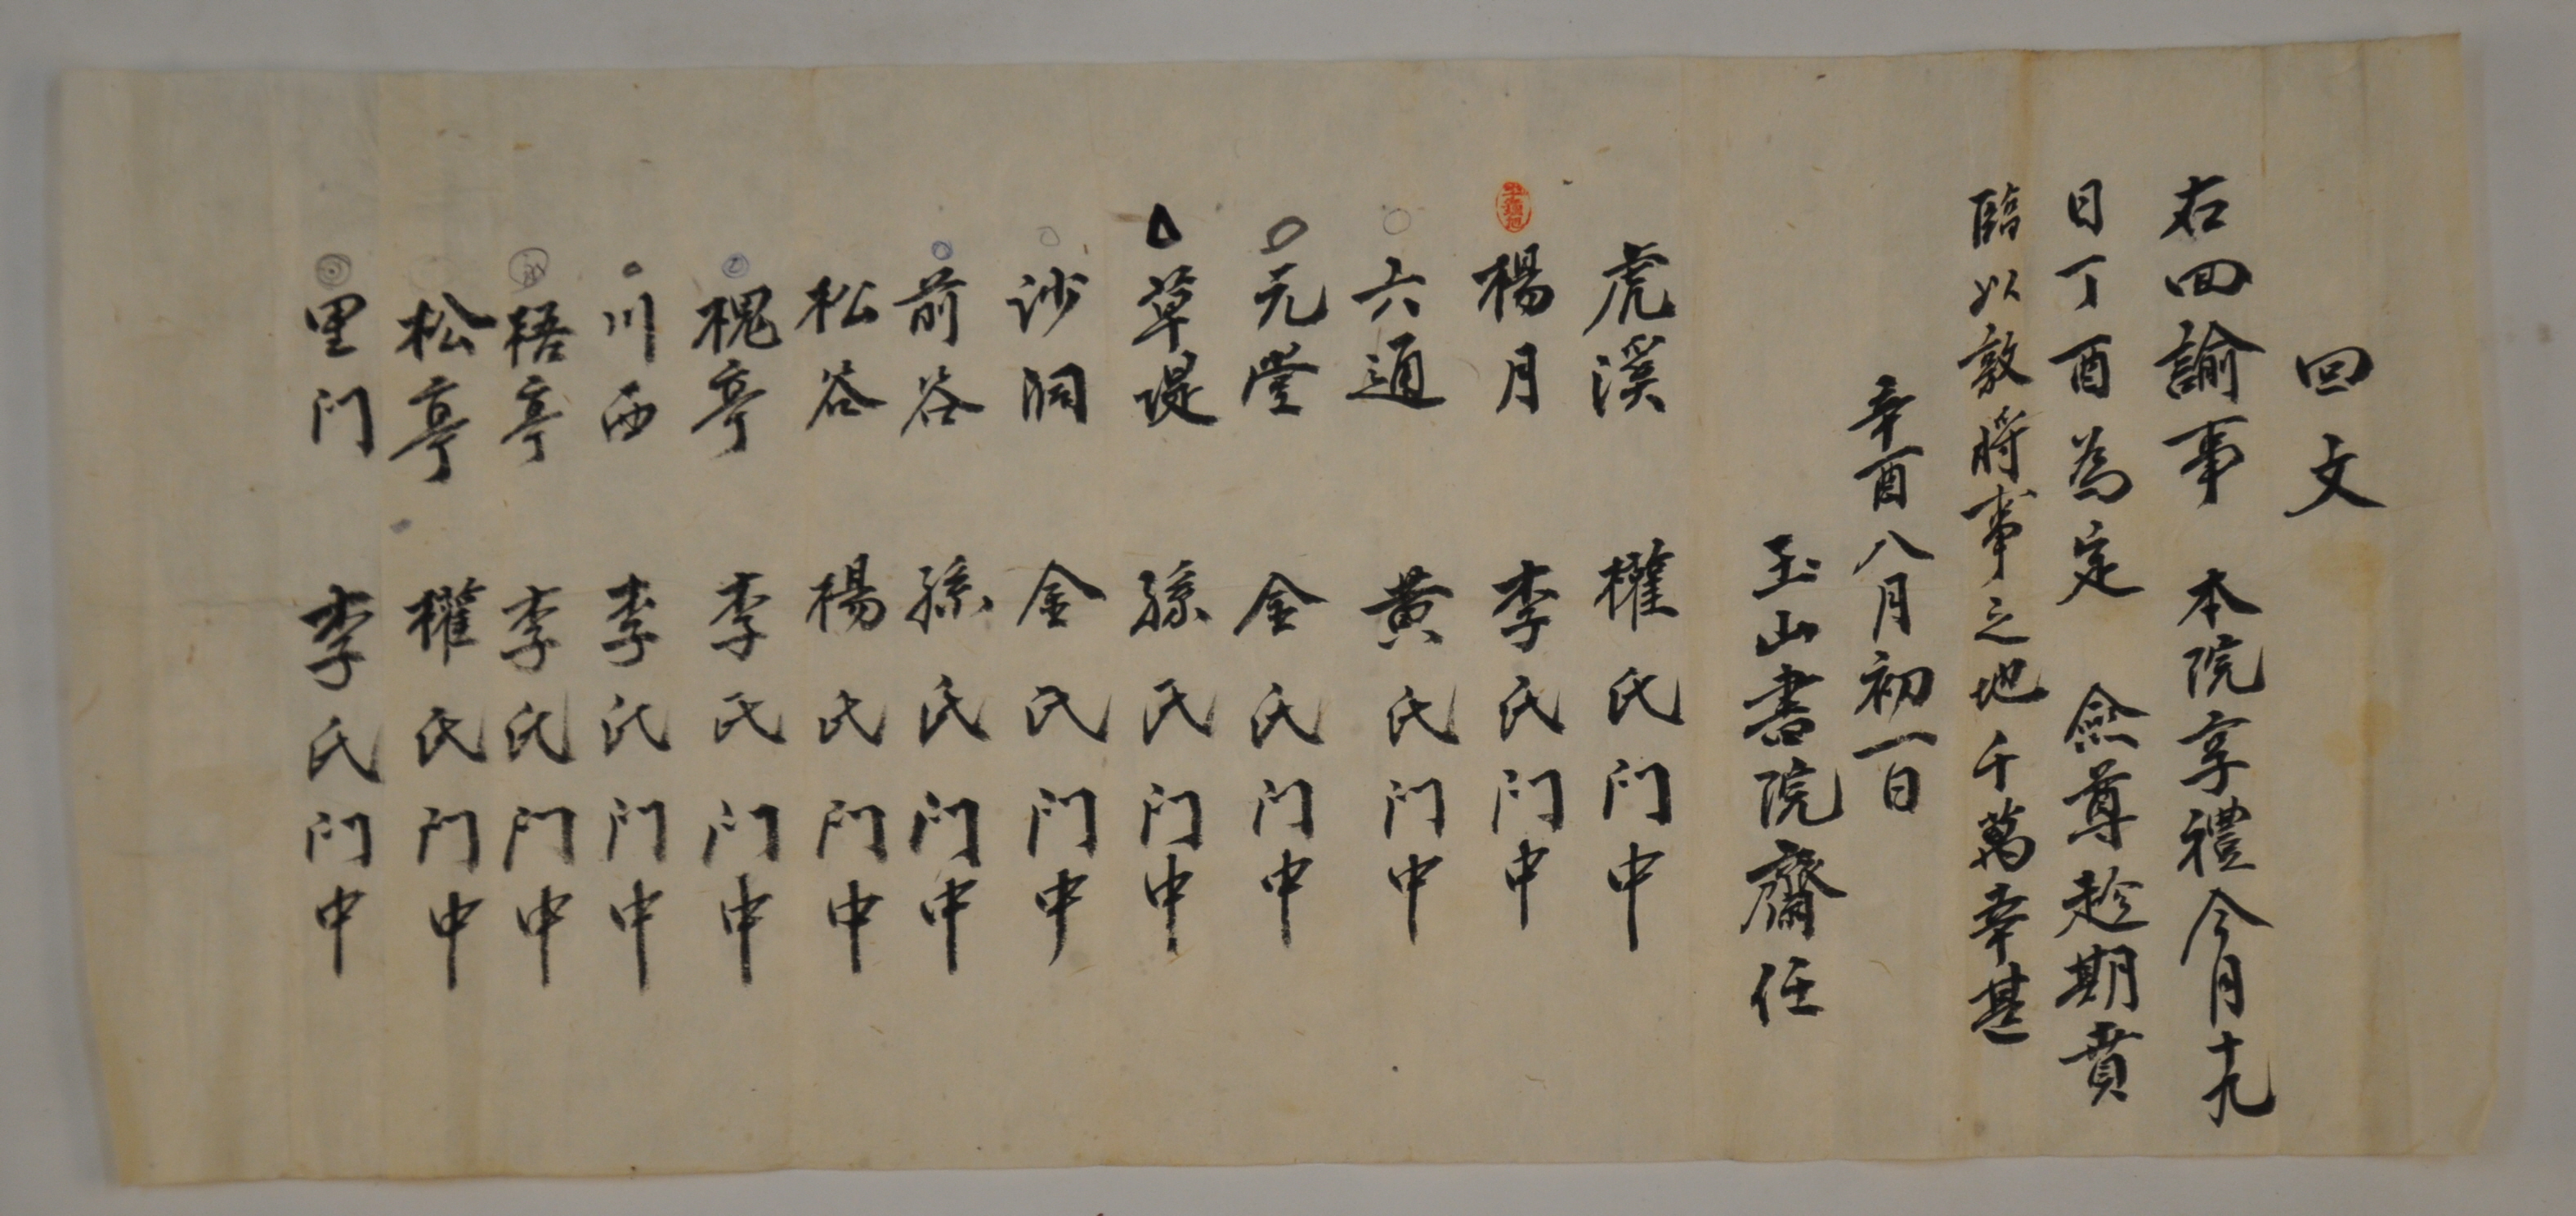 回文
右回諭事 本院享禮今月十九
日丁酉為定 僉尊趁期賁
臨以敦將事之地千萬幸甚
辛酉八月初一日
玉山書院齋任
虎溪 權氏门中
楊月 李氏门中
六通 黃氏门中
元堂 金氏门中
草堤 孫氏门中
沙洞 金氏门中
前谷 孫氏门中
松谷 楊氏门中
槐亭 李氏门中
川西 李氏门中
梧亭 李氏门中
松亭 權氏门中
里门 李氏门中